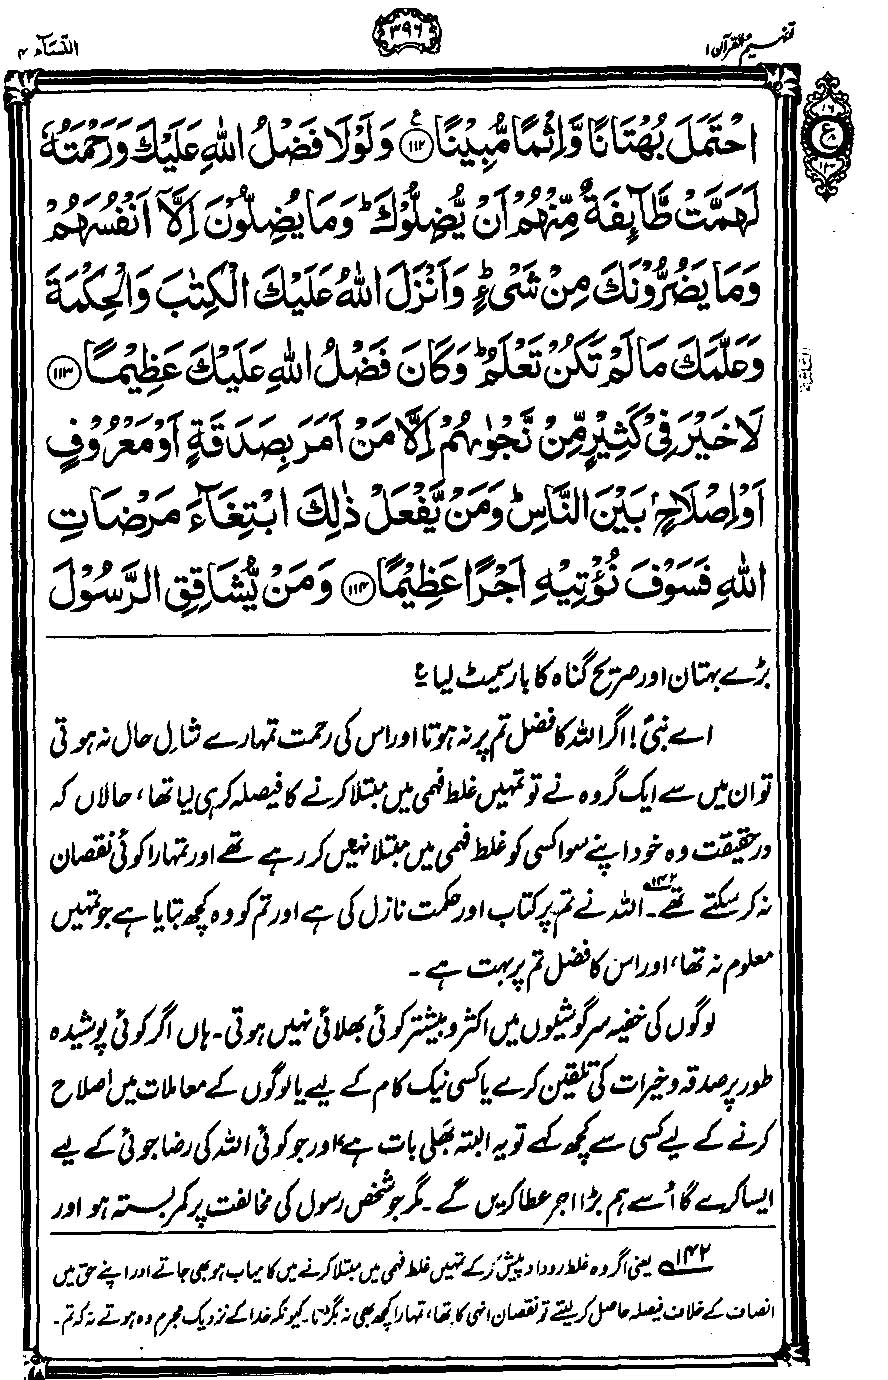 تفہیم القرآن ۱
۳۹۶
النسآء ۴
احْتَمَلَ بُهْتَانًا وَّاِثْمًا مُّبِيْنًا ﴿۱۱۲﴾ ع وَلَوْلَا فَضْلُ اللّٰهِ عَلَيْكَ وَرَحْمَتُهٗ
لَهَمَّتْ طَّآىِٕفَةٌ مِّنْهُمْ اَنْ يُّضِلُّوْكَ ؕ وَمَا يُضِلُّوْنَ اِلَّاۤ اَنْفُسَهُمْ
وَمَا يَضُرُّوْنَكَ مِنْ شَیْءٍ ؕ وَاَنْزَلَ اللّٰهُ عَلَيْكَ الْكِتٰبَ وَالْحِكْمَةَ
وَعَلَّمَكَ مَا لَمْ تَكُنْ تَعْلَمُ ؕ وَكَانَ فَضْلُ اللّٰهِ عَلَيْكَ عَظِيْمًا ﴿۱۱۳﴾
لَا خَيْرَ فِیْ كَثِيْرٍ مِّنْ نَّجْوٰىهُمْ اِلَّا مَنْ اَمَرَ بِصَدَقَةٍ اَوْ مَعْرُوْفٍ
اَوْ اِصْلَاحٍۭ بَيْنَ النَّاسِ ؕ وَمَنْ يَّفْعَلْ ذٰلِكَ ابْتِغَآءَ مَرْضَاتِ
اللّٰهِ فَسَوْفَ نُؤْتِيْهِ اَجْرًا عَظِيْمًا ﴿۱۱۴﴾ وَمَنْ يُّشَاقِقِ الرَّسُوْلَ
بڑے بہتان اور صریح گناہ کا بار سمیٹ لیا ع
اے نبیؐ! اگر اللہ کا فضل تم پر نہ ہوتا اور اس کی رحمت تمہارے شاملِ حال نہ ہوتی
تو ان میں سے ایک گروہ نے تو تمہیں غلط فہمی میں مبتلا کرنے کا فیصلہ کر ہی لیا تھا، حالاں کہ
درحقیقت وہ خود اپنے سوا کسی کو غلط فہمی میں مبتلا نہیں کر رہے تھے اور تمہارا کوئی نقصان
نہ کر سکتے تھے۔۱۴۲ اللہ نے تم پر کتاب اور حکمت نازل کی ہے اور تم کو وہ کچھ بتایا ہے جو تمہیں
معلوم نہ تھا، اور اس کا فضل تم پر بہت ہے۔
لوگوں کی خفیہ سرگوشیوں میں اکثر و بیشتر کوئی بھلائی نہیں ہوتی۔ ہاں اگر کوئی پوشیدہ
طور پر صدقہ و خیرات کی تلقین کرے یا کسی نیک کام کے لیے یا لوگوں کے معاملات میں اصلاح
کرنے کے لیے کسی سے کچھ کہے تو یہ البتہ بھلی بات ہے، اور جو کوئی اللہ کی رضا جوئی کے لیے
ایسا کرے گا اُسے ہم بڑا اجر عطا کریں گے۔ مگر جو شخص رسول کی مخالفت پر کمر بستہ ہو اور
۱۴۲ یعنی اگر وہ غلط روداد پیش کر کے تمہیں غلط فہمی میں مبتلا کرنے میں کامیاب ہو بھی جاتے اور اپنے حق میں
انصاف کے خلاف فیصلہ حاصل کر لیتے تو نقصان انہی کا تھا، تمہارا کچھ بھی نہ بگڑتا۔ کیونکہ خدا کے نزدیک مجرم وہ ہوتے نہ کہ تم۔